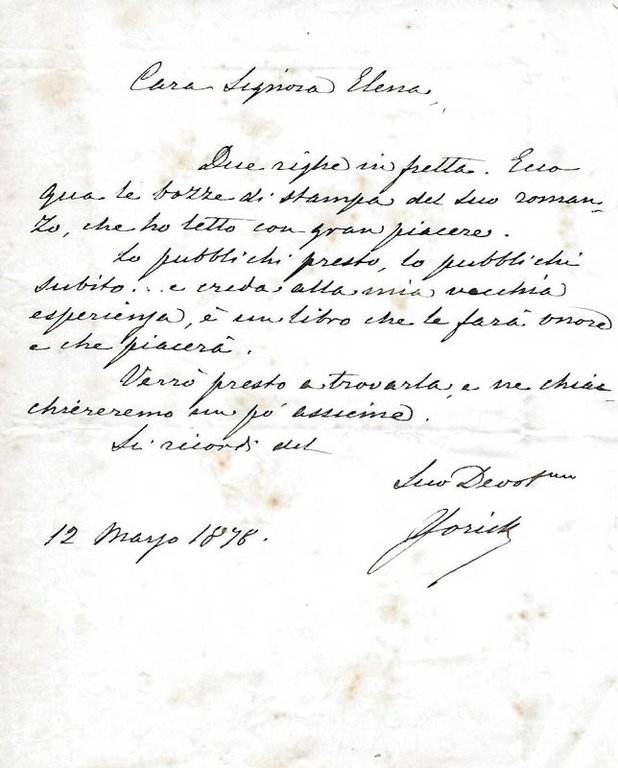 Cara Signora Elena,
Due righe in fretta. Ecco
qua le bozze di stampa del suo roman-
zo, che ho letto con gran piacere.
Lo pubblichi presto, lo pubblichi
subito... e creda alla mia vecchia
esperienza, è un libro che le farà onore
e che piacerà.
Verrò presto a trovarla, e ne chiac-
chiereremo un po' assieme.
Si ricordi del
Suo Devot.mo
Yorick
12 Marzo 1878.